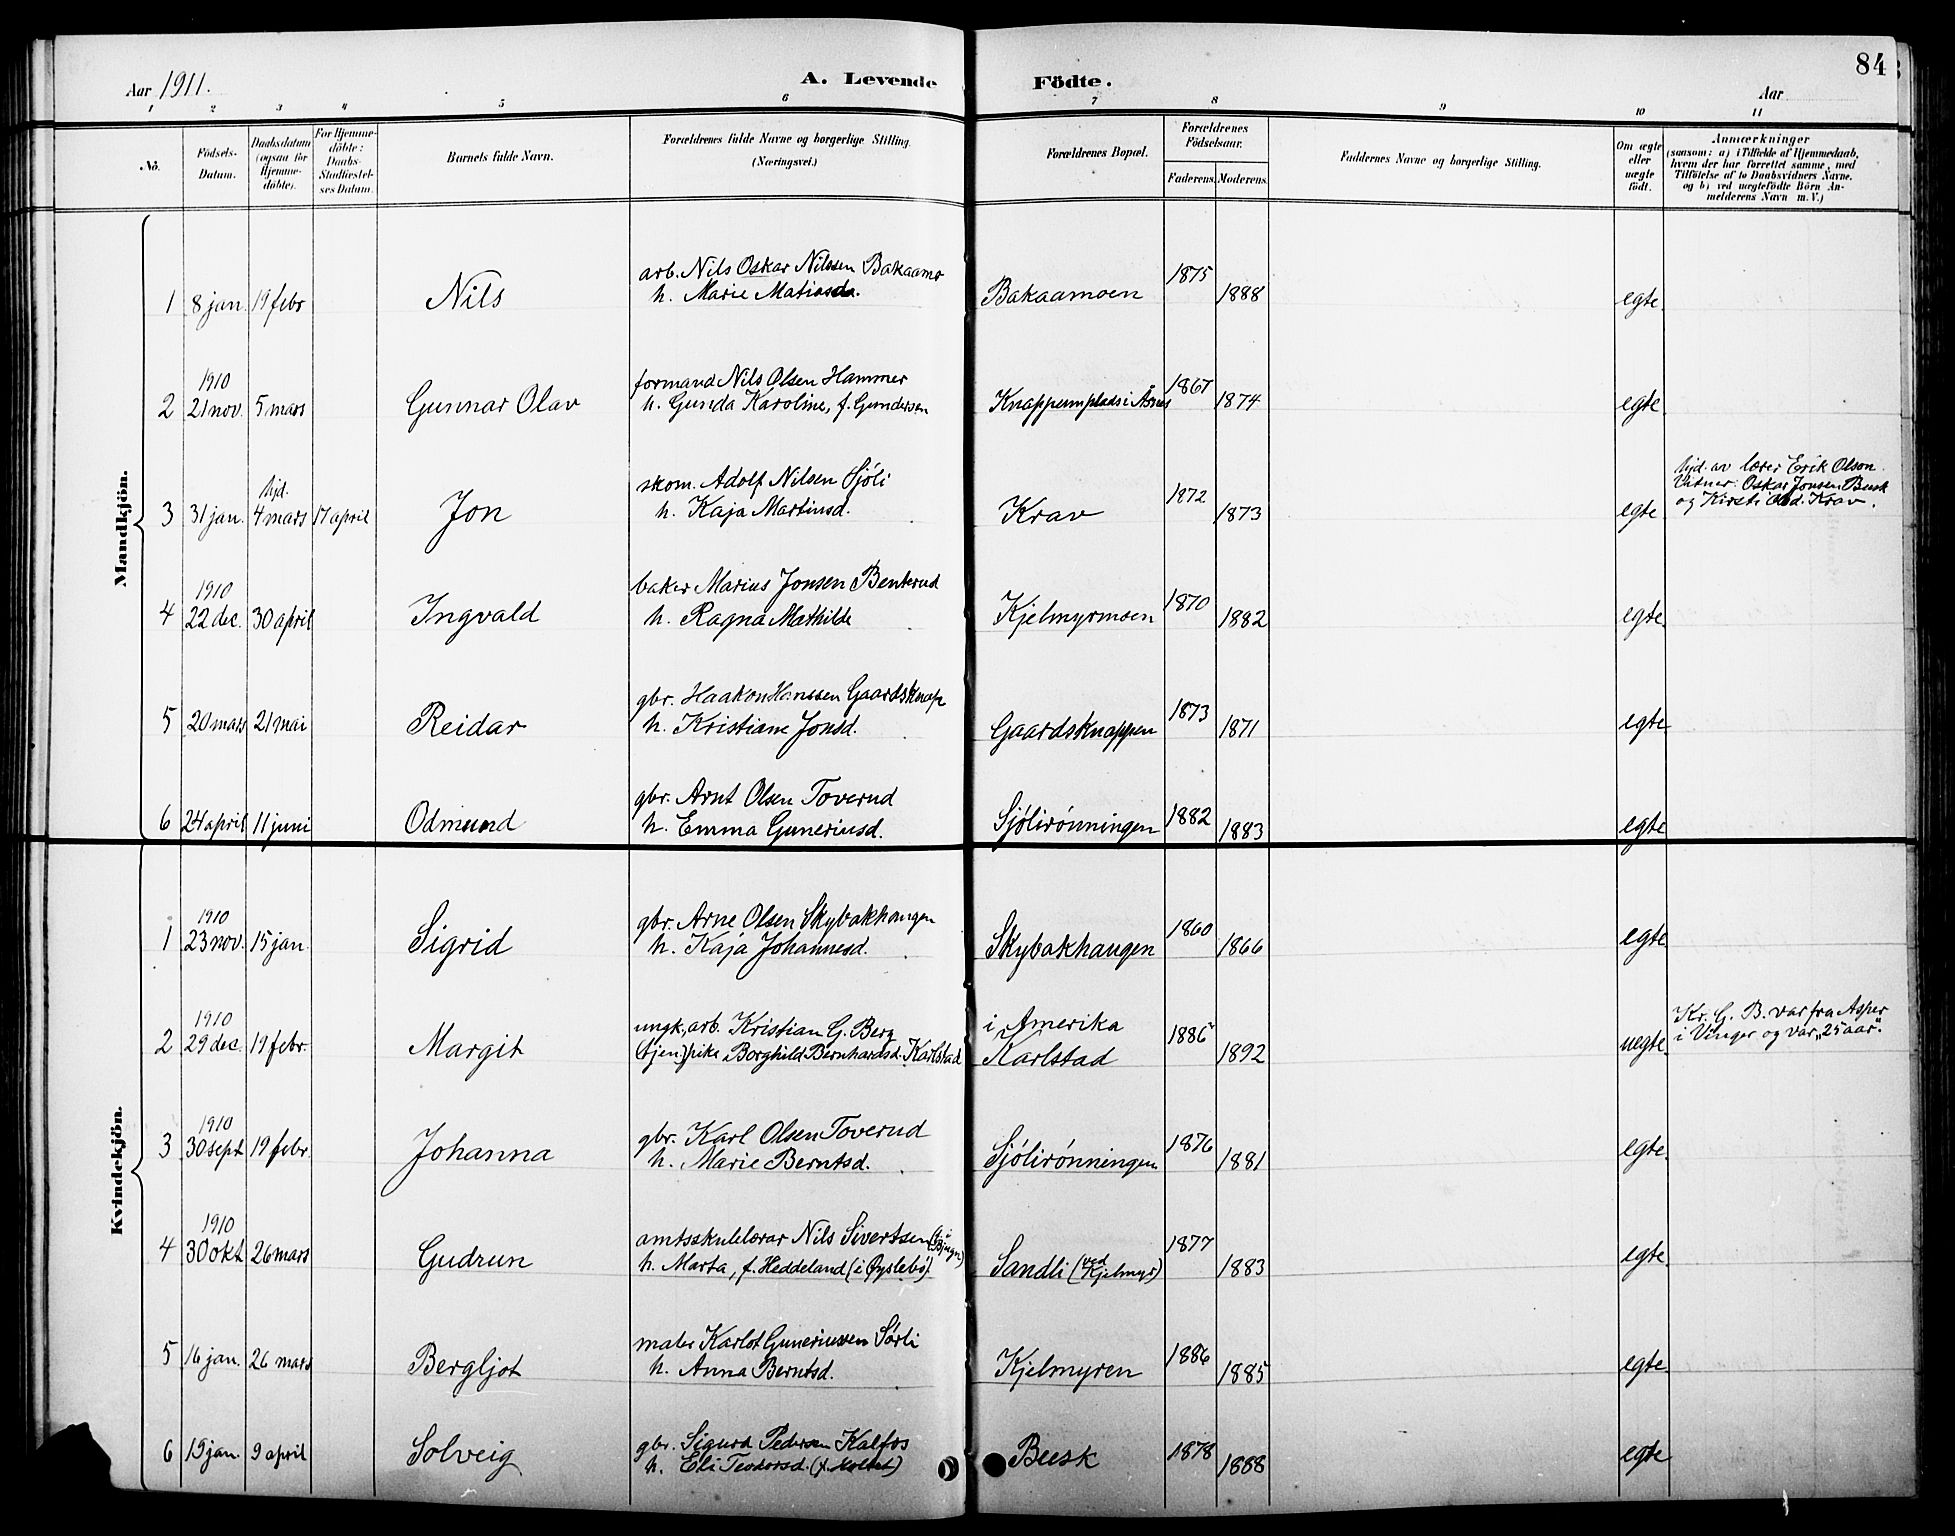 84
Aar 1911.
A. Levende Födte.
Aar
1 2 3 4 5 6 7 8 9 10 11
No.
Födsels-Datum.
Daabsdatum (ogsaa for Hjemme-döbte).
For Hjemme-döbte: Daabs-Stadfæstel-ses Datum.
Barnets fulde Navn.
Forældrenes fulde Navne og borgerlige Stilling. (Næringsvei.)
Forældrenes Bopæl.
Forældrenes Födselsaar.
Faderens. Moderens.
Faddernes Navne og borgerlige Stilling.
Om ægte eller uægte födt.
Anmærkninger
(saasom: a) i Tilfælde af Hjemmedaab,
hvem der har forrettet samme, med
Tilföielse af to Daabsvidners Navne.
og b) ved uægtefödte Börn An-
melderens Navn m. V.)
Mandkjön.
arb. Nils Oskar Nilssen Bakaamo 1875
1 8 jan. 19 febr Nils h. Marie Matiasd. Bakaamoen 1888 egte
1910 formand Nils Olsen Hammer 1867
2 21 nov. 5 mars Gunnar Olav h. Gunda Karoline, f. Gundersen Knappumplads i Åsnes 1874 egte
hjd. skom. Adolf Nilsen Sjöli 1872 hjd. av lærer Erik Olson.
Vitner: Oskar Jonsen Busk
3 31 jan. 4 mars 17 april Jon h. Kaja Martinsd. Krav 1873 egte og Kirsti Olsd. Krav.
1910 baker Marius Jonsen Benterud 1870
4 22 dec. 30 april Ingvald h. Ragna Mathilde Kjelmyrmoen 1882 egte
gbr. Haakon Hanssen Gaardsknap 1873
5 20 mars 21 mai Reidar h. Kristiane Jonsd. Gaardsknappen 1871 egte
gbr. Arnt Olsen Toverud 1882
6 24 april 11 juni Odmund h. Emma Guneriusd. Sjölirönningen 1883 egte
Kvindekjön.
1910 gbr. Arne Olsen Skybakhaugen 1860
1 23 nov. 15 jan. Sigrid h. Kaja Johannesd. Skybakhaugen 1866 egte
1910 ungk., arb. Kristian G. Berg i Amerika 1885 Kr. G. B. var fra Asper
2 29 dec. 19 febr. Margit (tjen.) pike Borghild Bernhardsd. Karlstad Karlstad 1892 uegte i Vinger og var "25 aar".
1910 gbr. Karl Olsen Toverud 1876
3 30 sept 19 febr. Johanna h. Marie Berntsd. Sjölirönningen 1881 egte
1910 amtsskulelærar Nils Sivertsen (i Bjugn) 1877
4 30 okt 26 mars Gudrun h. Marta, f. Heddeland (i Øyslebø) Sandli (ved Kjelmyr) 1883 egte
maler Karlot Guneriussen Sörli 1886
5 16 jan. 26 mars Bergljot h. Anna Berntsd. Kjelmyren 1885 egte
gbr. Sigurd Pedersen Kalfos 1878
6 15 jan. 9 april Solveig h. Eli Teodorsd. Busk 1888 egte